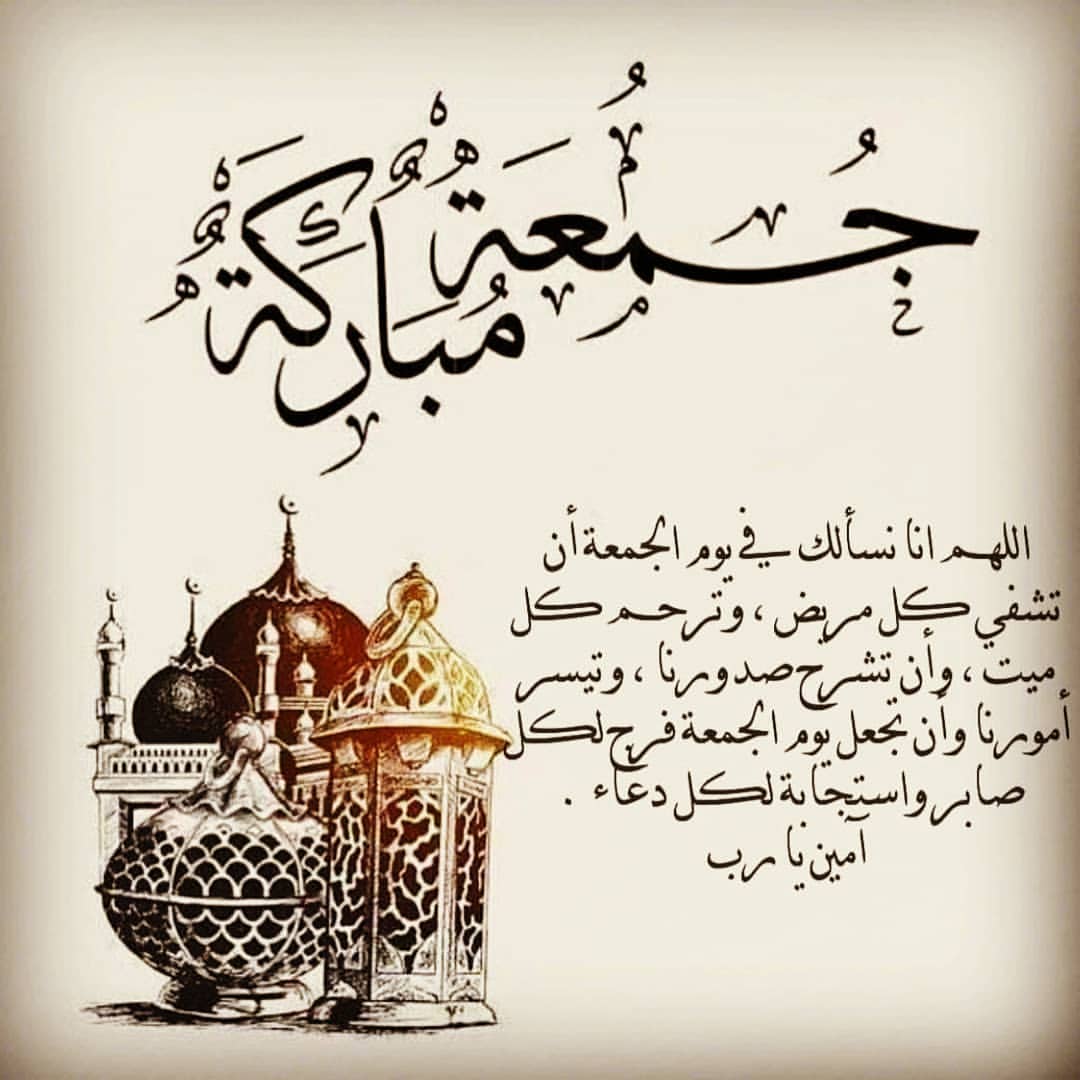 جُمُعَةٌ
مُبَارَكَةٌ
اللهم انا نسألك في يوم الجمعة أن
تشفي كل مريض ، وترحم كل
ميت ، وأن تشرح صدورنا ، وتيسر
أمورنا وأن تجعل يوم الجمعة فرج لكل
صابر واستجابة لكل دعاء .
آمين يا رب